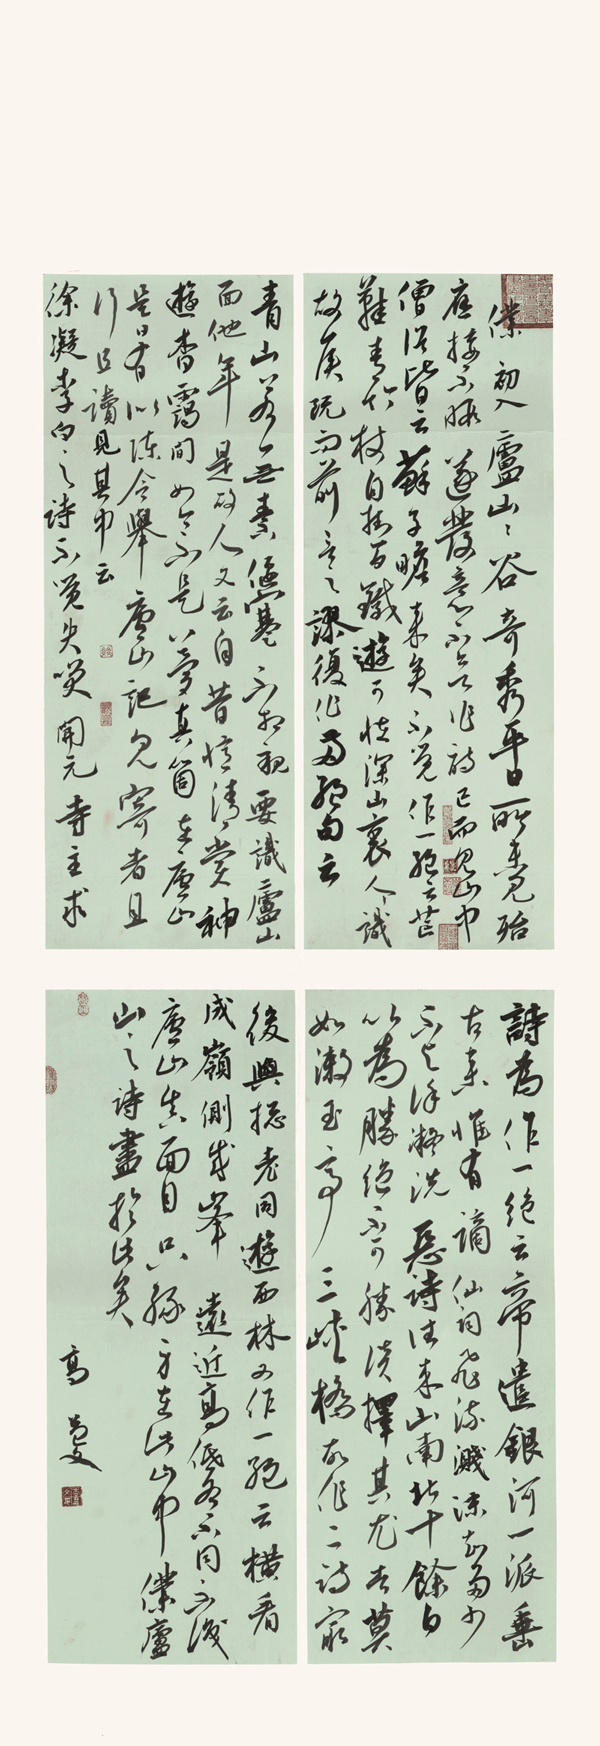 僕初入廬山山谷奇秀平日所未見殆
應接不暇遂發意不欲作詩已而見山中
僧俗皆云蘇子瞻來矣不覺作一絕云芒
鞋青竹杖自掛百錢遊可怪深山裏人人識
故侯既而前言之謬復作兩絕句云
青山若無素偃蹇不相親要識廬山
面他年是故人又云自昔憶清賞神
遊杳靄間如今不是夢真箇在廬山
是日有以陳令舉廬山記見寄者且
行且讀見其中云
徐凝李白之詩不覺失笑開元寺主求
詩為作一絕云帝遣銀河一派垂
古來惟有謫仙詞飛流濺沫知多少
不與徐凝洗惡詩往來山南北十餘日
以為勝絕不可勝談擇其尤者莫
如漱玉亭三峽橋故作二詩最
後與摠老同遊西林又作一絕云橫看
成嶺側成峯遠近高低各不同不識
廬山真面目只緣身在此山中僕廬
山之詩盡於此矣
高